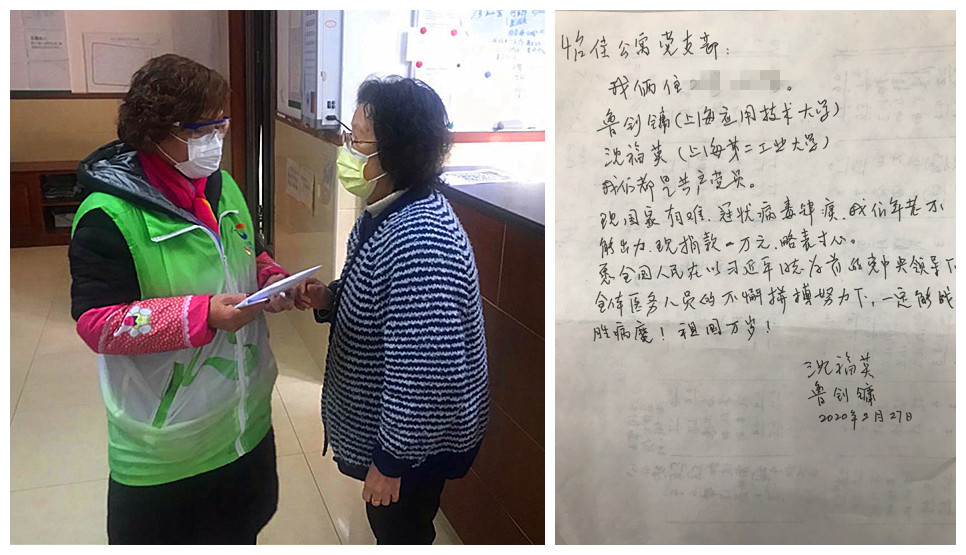 怡佳公寓党支部：
我俩住
鲁剑镛(上海应用技术大学)
沈福英(上海第二工业大学)
我们都是共产党员。
现国家有难，冠状病毒肆疟，我们年老不
能出力，现捐款一万元，略表寸心。
愿全国人民在以习近平同志为首的党中央领导下
全体医务人员的不懈拼搏努力下，一定能战
胜病魔！祖国万岁！
沈福英
鲁剑镛
2020年2月27日